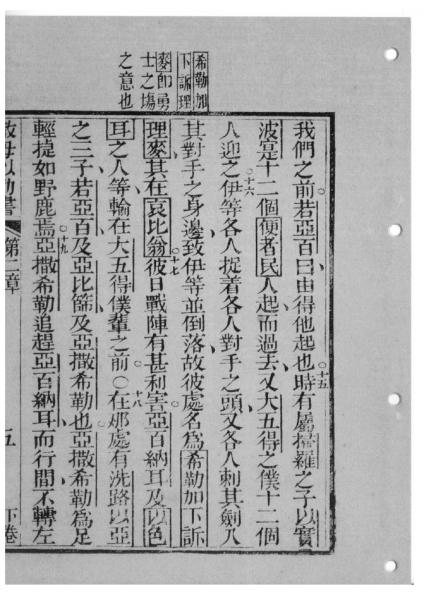 希勒加
下訴理
麥即勇
士之塲
之意也
我們之前若亞百曰由得他起也○十五時有屬掃羅之子以實
波寔十二個便者民人起而過去又大五得之僕十二個
人迎之○十六伊等各人捉着各人對手之頭又各人刺其劍入
其對手之身邊致伊等並倒落故彼處名為希勒加下訴
理麥其在哀比翁○十七彼日戰陣有甚利害亞百納耳及以色
耳之人等輸在大五得僕輩之前○十八○在那處有洗路以亞
之三子若亞百及亞比篩及亞撒希勒也亞撒希勒為足
輕捷如野鹿焉○十九亞撒希勒追趕亞百納耳而行間不轉左
第二章 五 下卷